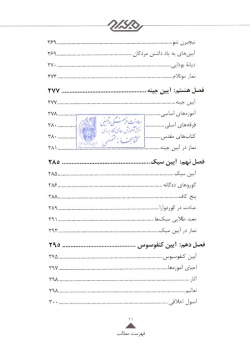 نیچیرن شو ... ۲۶۹
آیین‌های به یاد داشتن مردگان ... ۲۶۹
دیانهٔ بودایی ... ۲۷۰
نماز موتالام ... ۲۷۳
فصل هشتم: آیین جینه ... ۲۷۷
آیین جینه ... ۲۷۷
آموزه‌های اساسی ... ۲۷۸
فرقه‌های اصلی ... ۲۸۰
کتاب‌های مقدس ... ۲۸۰
نماز در آیین جینه ... ۲۸۱
فصل نهم: آیین سیک ... ۲۸۵
آیین سیک ... ۲۸۵
گوروهای ده‌گانه ... ۲۸۶
پنج کاف ... ۲۸۸
عبادت در گوردوارا ... ۲۸۹
معبد طلایی سیک‌ها ... ۲۹۱
نماز در آیین سیک ... ۲۹۲
فصل دهم: آیین کنفوسیوس ... ۲۹۵
آیین کنفوسیوس ... ۲۹۵
احیای آموزه‌ها ... ۲۹۷
آثار ... ۲۹۸
تعالیم ... ۲۹۸
اصول اخلاقی ... ۳۰۰
۱۱
فهرست مطالب